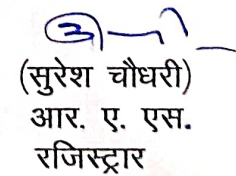 (सुरेश चौधरी)
आर. ए. एस.
रजिस्ट्रार